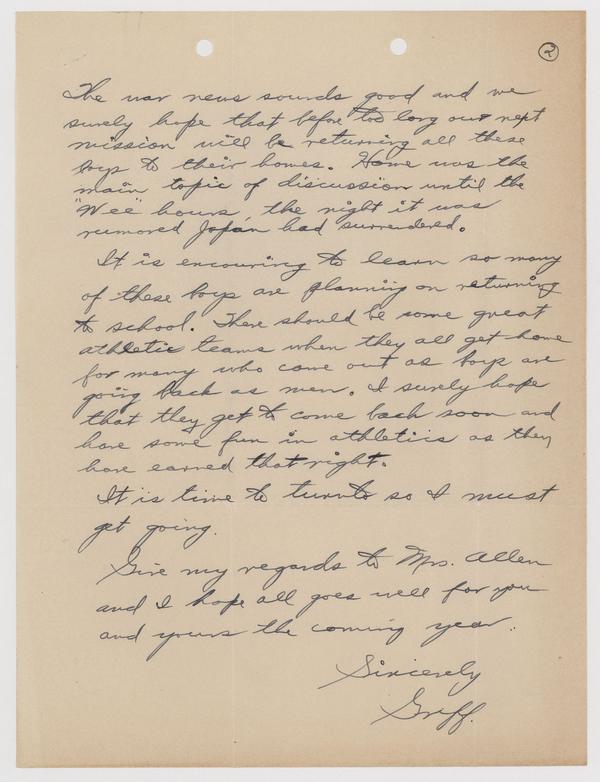 2
The war news sounds good and we
surely hope that before too long our next
mission will be returning all these
boys to their homes. Home was the
main topic of discussion until the
"Wee" hours, the night it was
rumored Japan had surrendered.
It is encouring to learn so many
of these boys are planning on returning
to school. There should be some great
athletic teams when they all get home
for many who came out as boys are
going back as men. I surely hope
that they get to come back soon and
have some fun in athletics as they
have earned that right.
It is time to turnto so I must
get going.
Give my regards to Mrs. Allen
and I hope all goes well for you
and yours the coming year.
Sincerely
Griff.